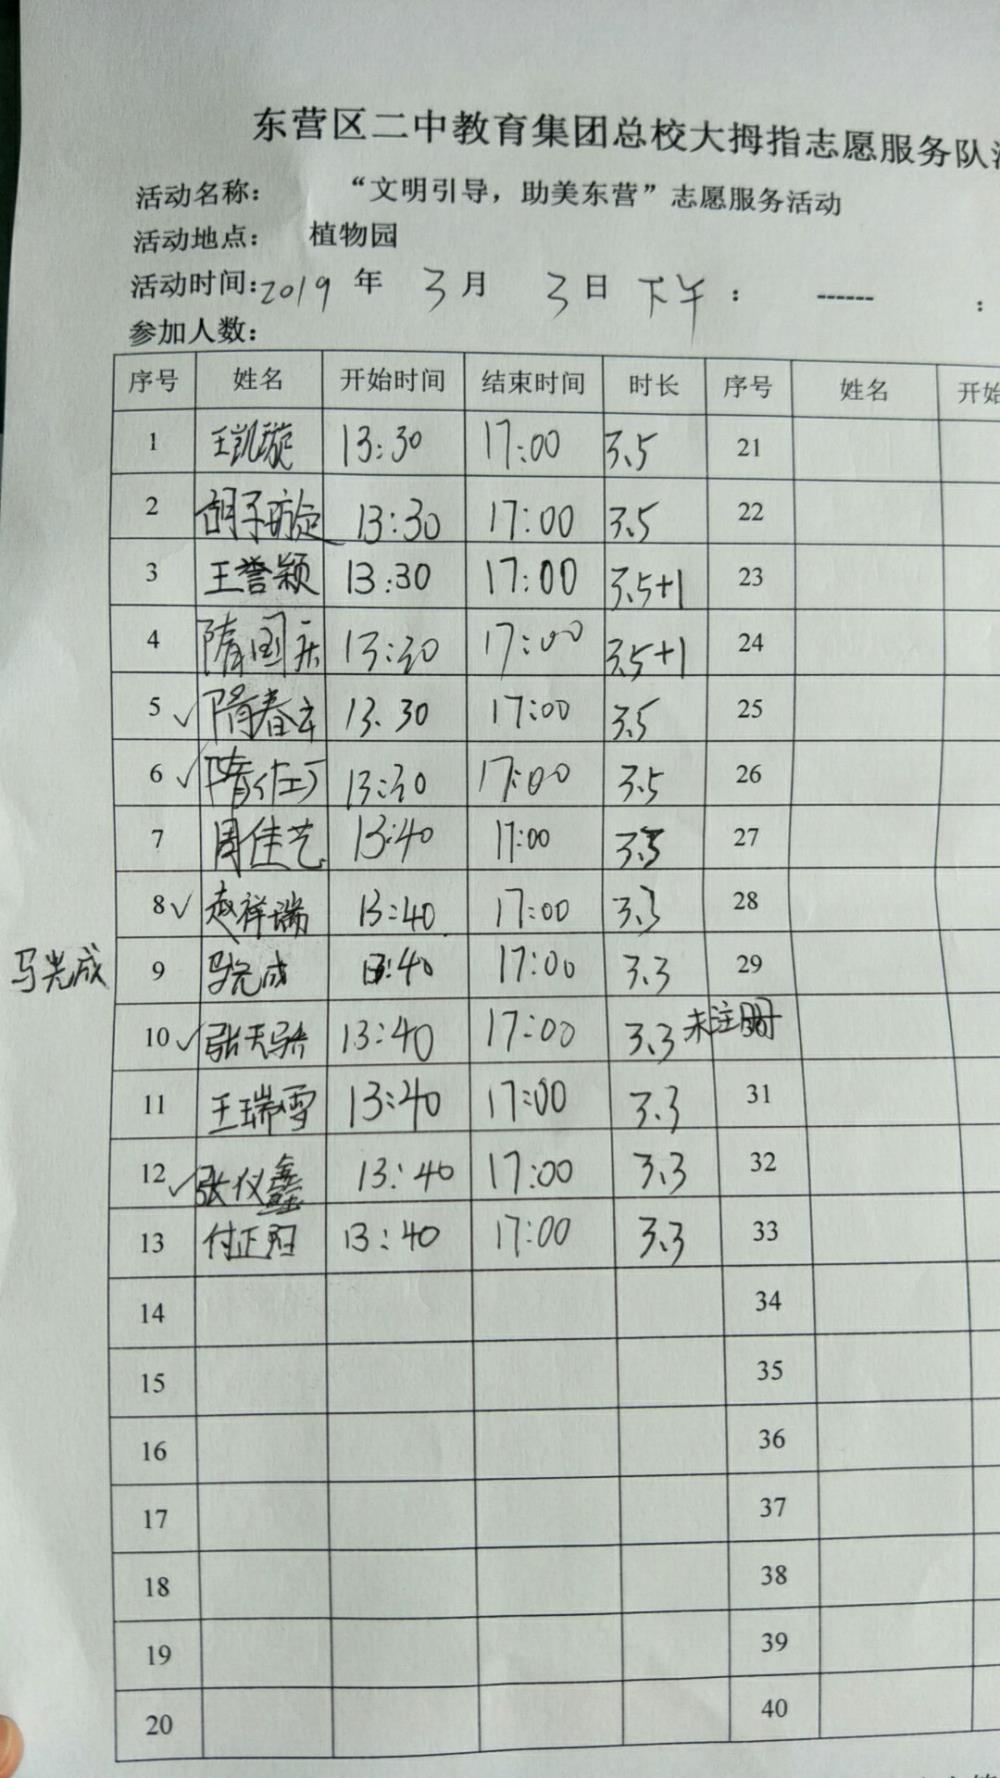 东营区二中教育集团总校大拇指志愿服务队
活动名称： “文明引导，助美东营”志愿服务活动
活动地点： 植物园
活动时间：2019 年 3月 3日 下午 ： ------ ：
参加人数：
序号 姓名 开始时间 结束时间 时长 序号 姓名 开始
1 王凯璇 13:30 17:00 3.5 21
2 胡子旋 13:30 17:00 3.5 22
3 王誉颖 13:30 17:00 3.5+1 23
4 隋国庆 13:30 17:00 3.5+1 24
5 ✓ 隋春 13.30 17:00 3.5 25
6 ✓ 隋 13:30 17:00 3.5 26
7 周佳艺 13:40 17:00 3.3 27
8 ✓ 赵祥瑞 13:40 17:00 3.3 28
马光成 9 马光成 13:40 17:00 3.3 29
10 ✓ 张天骄 13:40 17:00 3.3 未注册 30
11 王瑞雪 13:40 17:00 3.3 31
12 ✓ 张仪鑫 13:40 17:00 3.3 32
13 付正 13:40 17:00 3.3 33
14 34
15 35
16 36
17 37
18 38
19 39
20 40